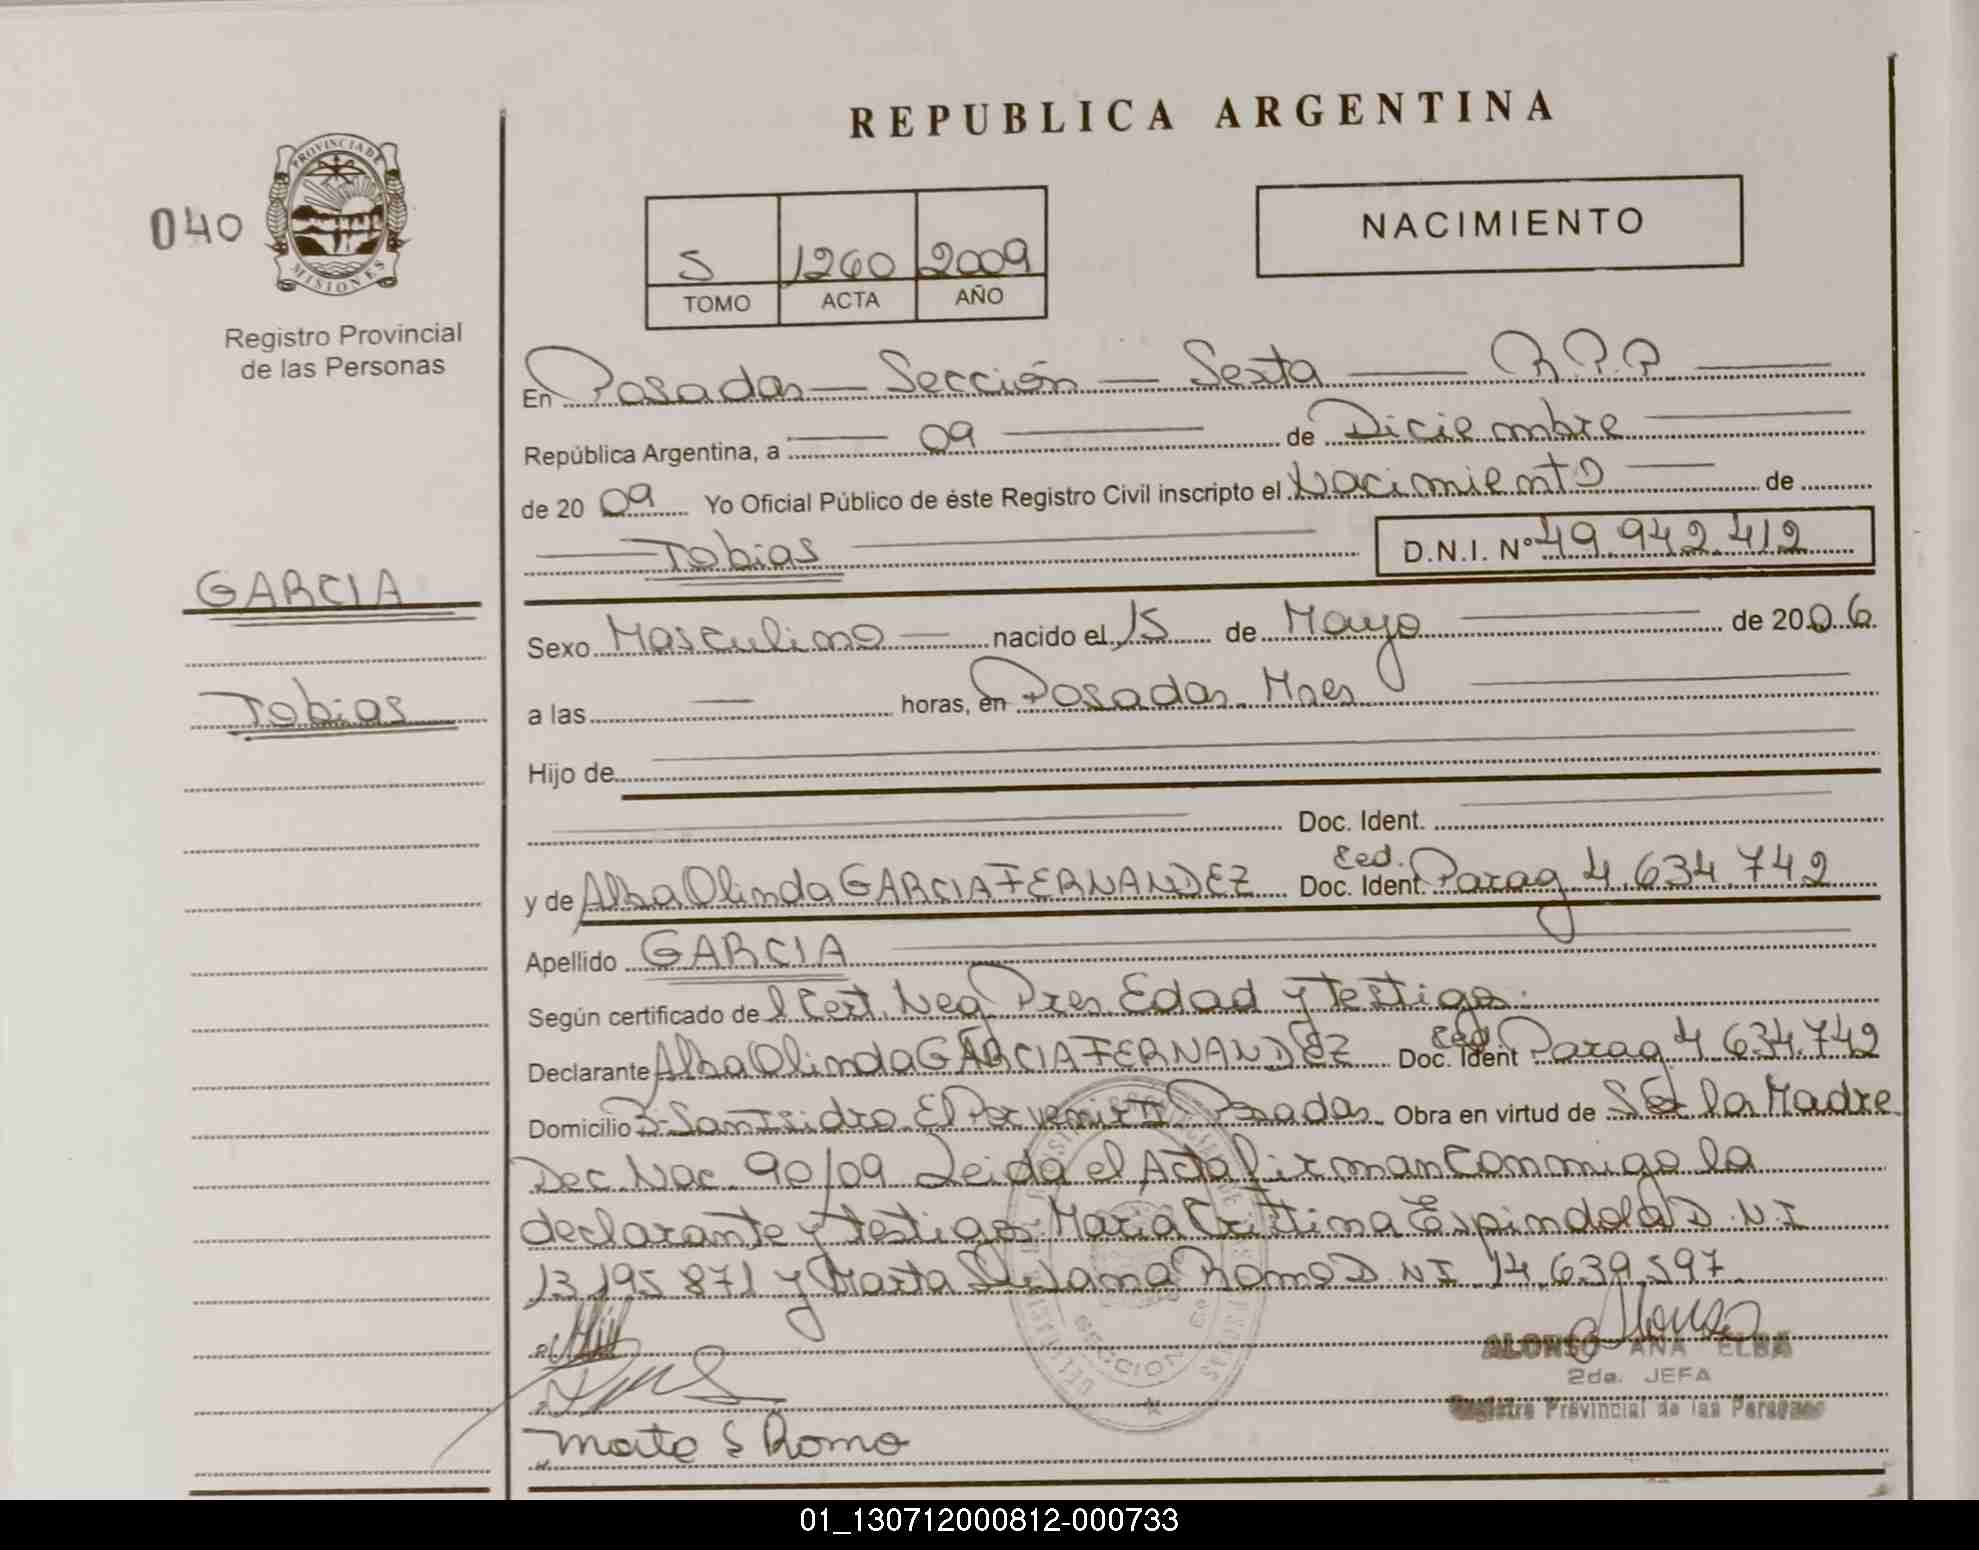 REPUBLICA ARGENTINA
PROVINCIA DE
MISIONES
040
Registro Provincial
de las Personas
5 1260 2009
TOMO ACTA AÑO
NACIMIENTO
En Posadas — Sección — Sexta — R.P.P —
República Argentina, a — 09 — de Diciembre —
de 2009 Yo Oficial Público de éste Registro Civil inscripto el Nacimiento — de
— Tobias — D.N.I. Nº 49.942.412
GARCIA
Tobias
Sexo Masculino — nacido el 15 de Mayo — de 2006
a las — horas, en Posadas Mnes —
Hijo de
Doc. Ident.
y de Alba Olinda GARCIA FERNANDEZ Doc. Ident. Ced. Parag 4.634.742
Apellido GARCIA —
Según certificado de Cert. Neg. Pres. Edad y testigos.
Declarante Alba Olinda GARCIA FERNANDEZ Doc. Ident Ced. Parag 4 634.742
Domicilio Bº San Isidro El Porvenir II Posadas Obra en virtud de la Madre
Dec. Nac. 90/09 Leida el Acta firman conmigo la
declarante y testigos: Maria Cristina Espindola D.N.I
13.195.871 y Marta Susana Romo D.N.I 14.639.597
ALONSO ANA ELBA
2da. JEFA
Registro Provincial de las Personas
SECCION 6º
Romo
01_130712000812-000733